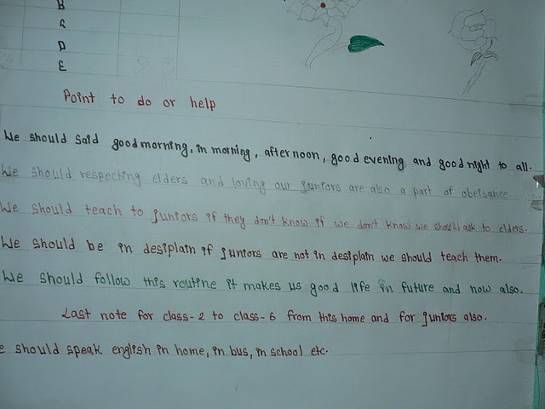 B
R
D
E
Point to do or help
We should said goodmorning, in morning, afternoon, good evening and good night to all.
We should respecting elders and loving our juniors are also a part of obeisance.
We should teach to juniors if they don't know if we don't know we should ask to elders.
We should be in desiplain if juniors are not in desiplain we should teach them.
We should follow this routine it makes us good life in future and now also.
Last note for class-2 to class-6 from this home and for juniors also.
e should speak english in home, in bus, in school etc.